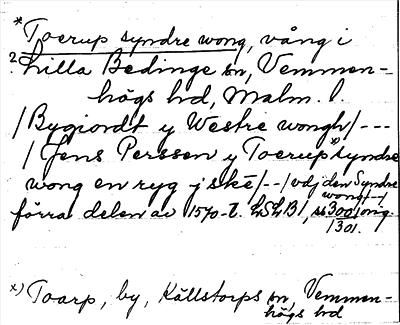 *Toerup syndre wong, vång i
? Lilla Bedinge sn, Vemmen-
högs hd, Malm. l.
/Bygiordt y Westre wongh/---
/Jens Perssen y Toerup*syndre
wong en ryg j ské/--/vdj den Syndre
wong/--/
förra delen av 1570-t. LSLB1, ss 300 orig.
1301.
x) Toarp, by, Källstorps sn, Vemmen-
högs hd